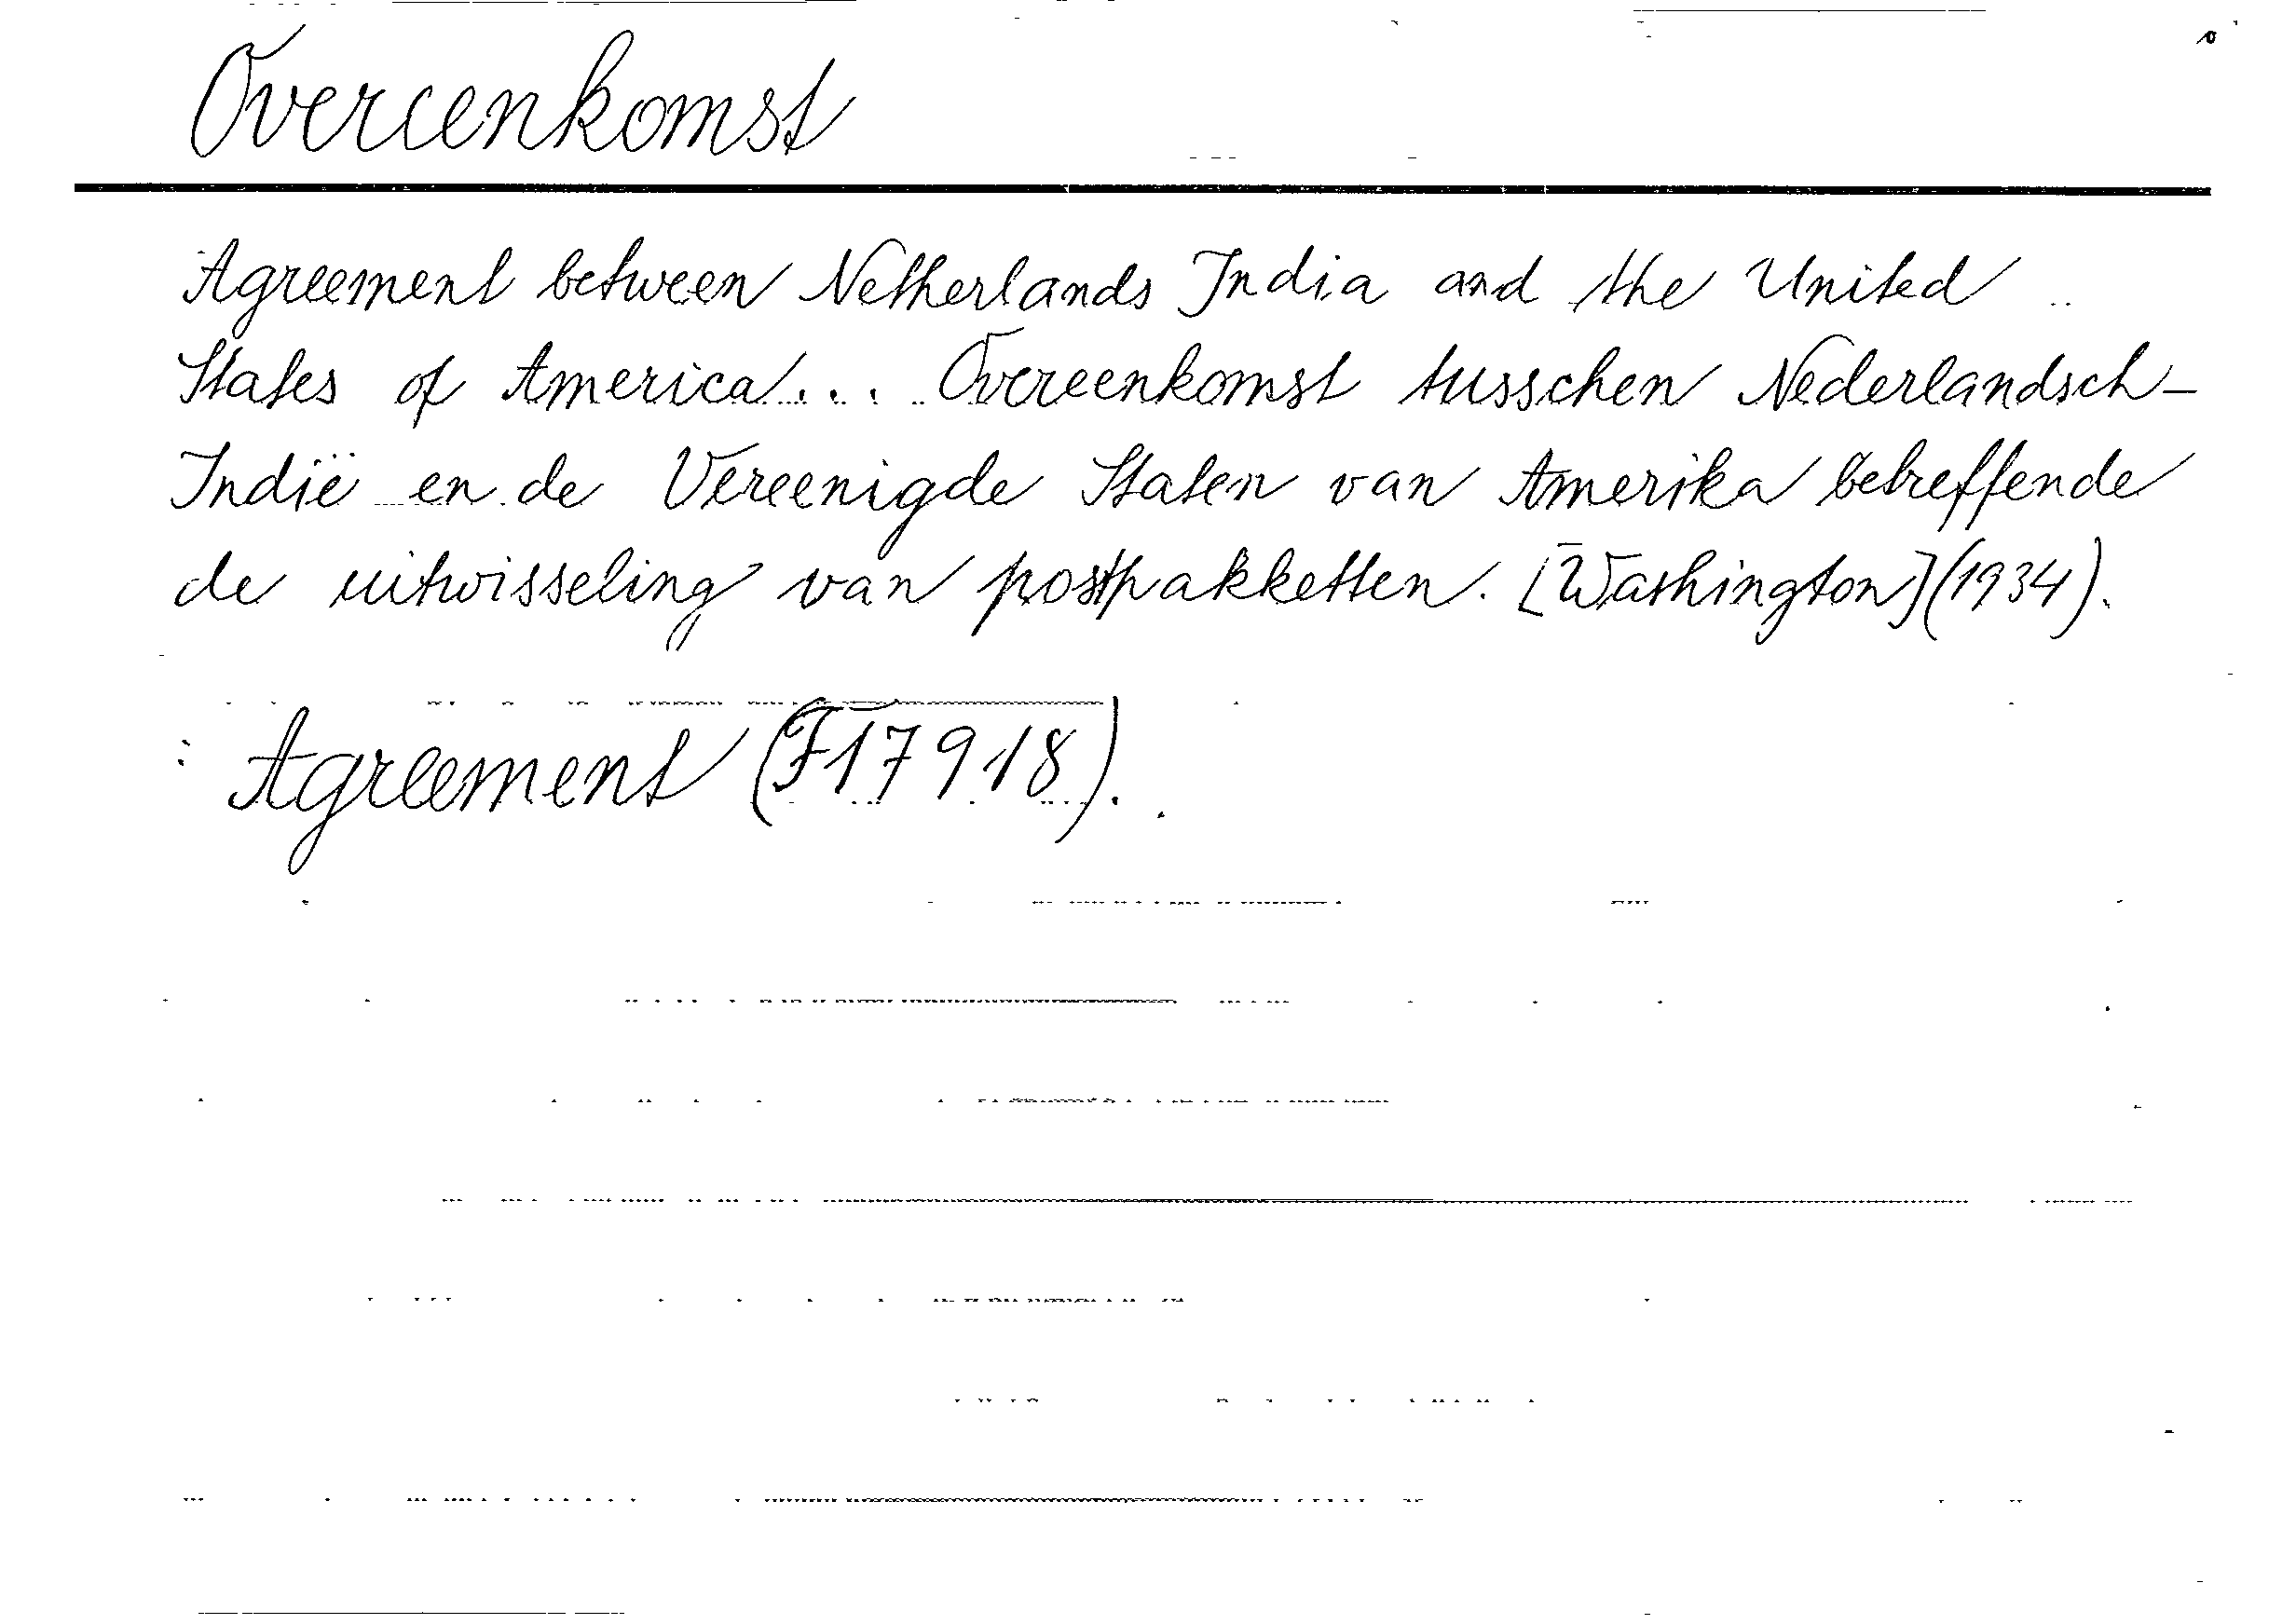 Overeenkomst
Agreement between Netherlands India and the United
States of America... Overeenkomst tusschen Nederlandsch-
Indië en de Vereenigde Staten van Amerika betreffende
de uitwisseling van postpakketten. [Washington] (1934).
Agreement (F17918).